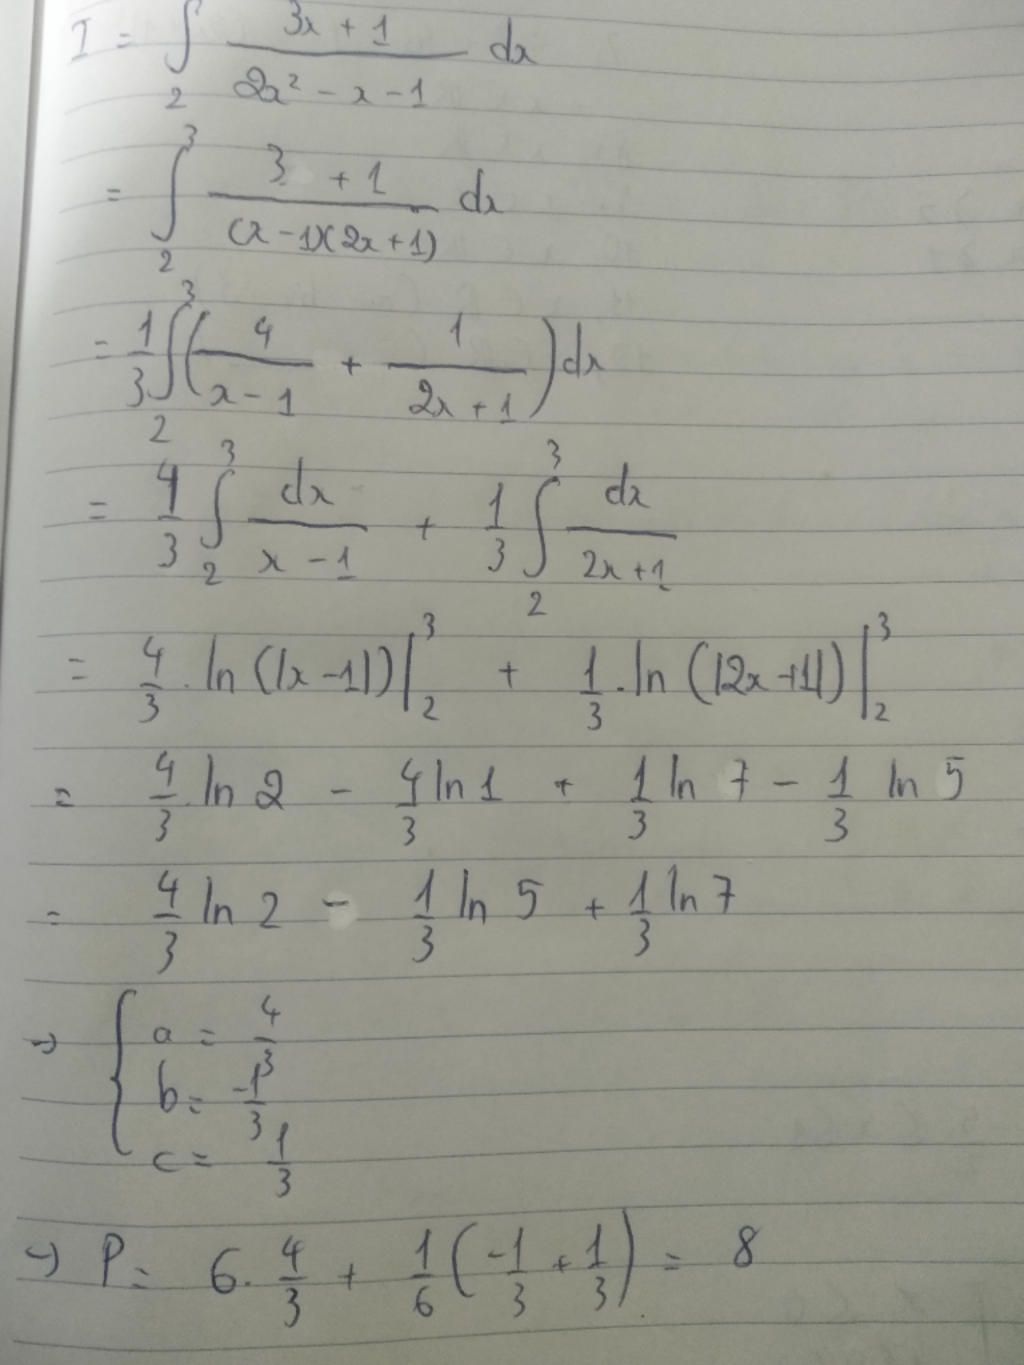 I = ∫₂ (3x + 1)/(2x² - x - 1) dx
= ∫₂³ (3 + 1)/((x - 1)(2x + 1)) dx
= 1/3 ∫₂³ (4/(x - 1) + 1/(2x + 1)) dx
= 4/3 ∫₂³ dx/(x - 1) + 1/3 ∫₂³ dx/(2x + 1)
= 4/3 . ln (|x - 1|) |₂³ + 1/3 . ln (|2x + 1|) |₂³
= 4/3 . ln 2 - 4/3 ln 1 + 1/3 ln 7 - 1/3 ln 5
= 4/3 ln 2 - 1/3 ln 5 + 1/3 ln 7
→ { a = 4/3
b = -1/3
c = 1/3
→ P = 6 . 4/3 + 1/6 (-1/3 + 1/3) = 8